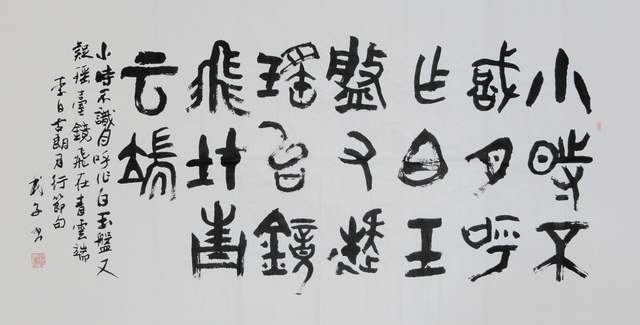 小時不
識月呼
作白玉
盤又疑
瑶台鏡
飛在青
云端
小時不識月呼作白玉盤又
疑瑶臺鏡飛在青雲端
李白古朗月行節句